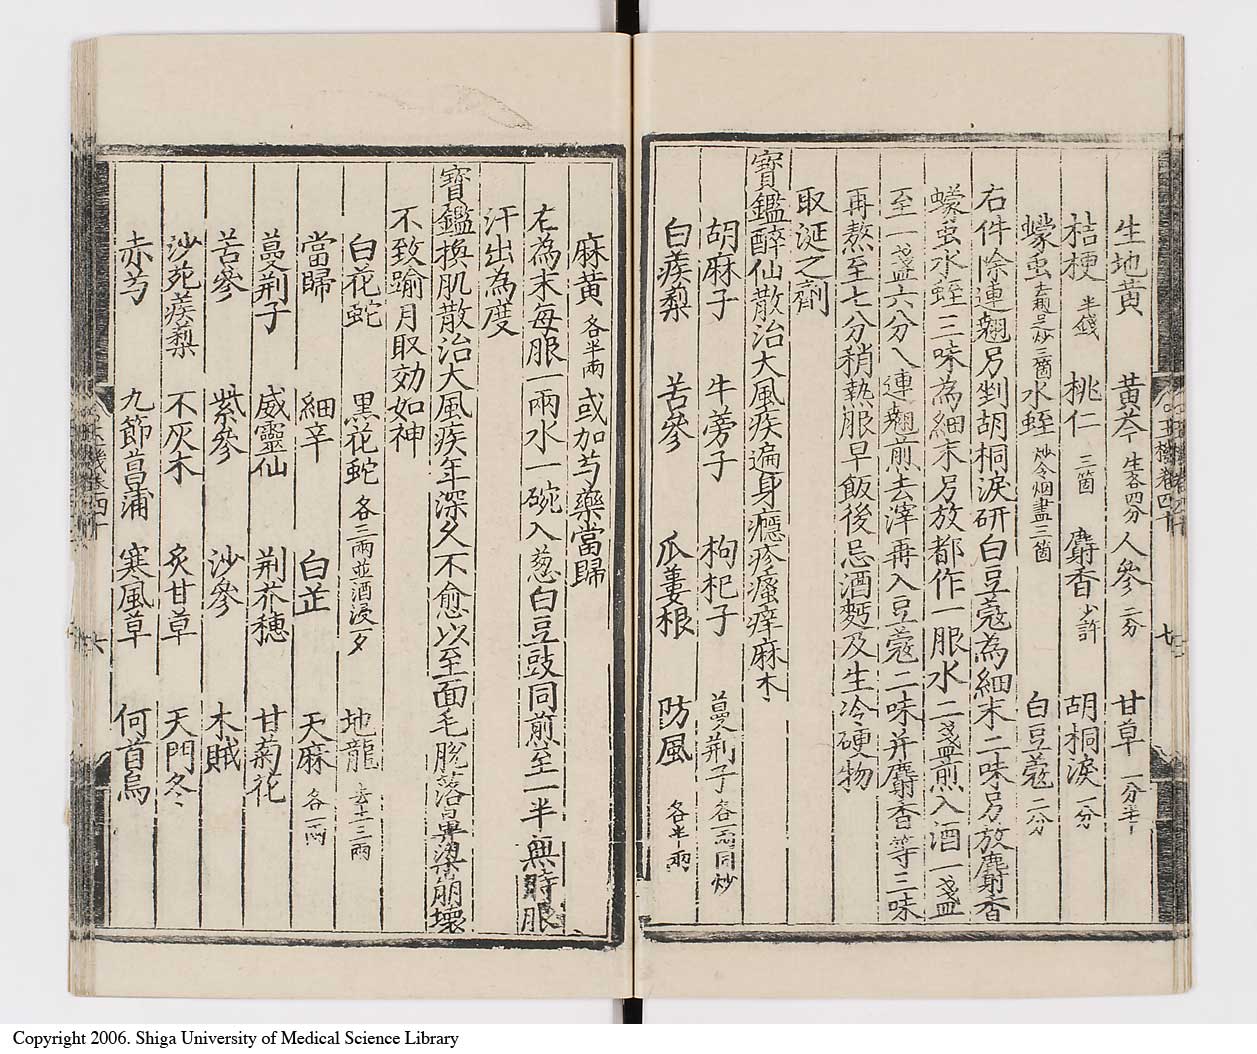 生地黄 黄芩生各四分 人參二分 甘草一分半
桔梗半錢 桃仁三箇 麝香少許 胡桐淚一分
蠓虫去翅足炒三箇 水蛭炒令烟盡三箇 白豆蔻二分
右件除連翹另剉胡桐淚研白豆蔻為細末二味另放麝香
蠓虫水蛭三味為細末另放都作一服水二盞煎入酒一盞
至一盞六分入連翹煎去滓再入豆蔻二味并麝香等三味
再熬至七分稍熱服早飯後忌酒麪及生冷硬物
取涎之劑
寶鑑醉仙散治大風疾遍身癮疹瘙痒麻木
胡麻子 牛蒡子 枸杞子 蔓荆子各一兩同炒
白蒺藜 苦參 瓜蔞根 防風各半兩
麻黄各半兩 或加芍藥當歸
右為末每服一兩水一碗入葱白豆豉同煎至一半無時服
汗出為度
寶鑑換肌散治大風疾年深久不愈以至面毛脫落鼻梁崩壞
不致踰月取効如神
白花蛇 黒花蛇各三兩並酒浸一夕 地龍去土三兩
當歸 細辛 白芷 天麻各一兩
蔓荆子 威靈仙 荆芥穗 甘菊花
苦參 紫參 沙參 木賊
沙苑蒺藜 不灰木 炙甘草 天門冬
赤芍 九節菖蒲 寒風草 何首烏